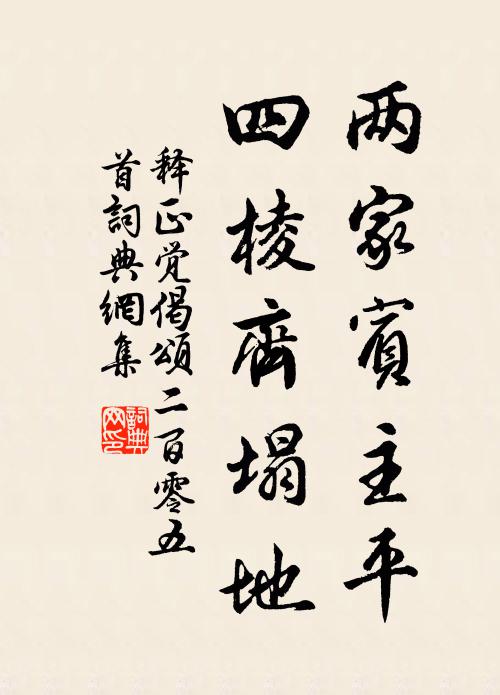 两家宾主平
四棱齊塌地
释正觉偈頌二百零五
首詞典網集
詞典网印